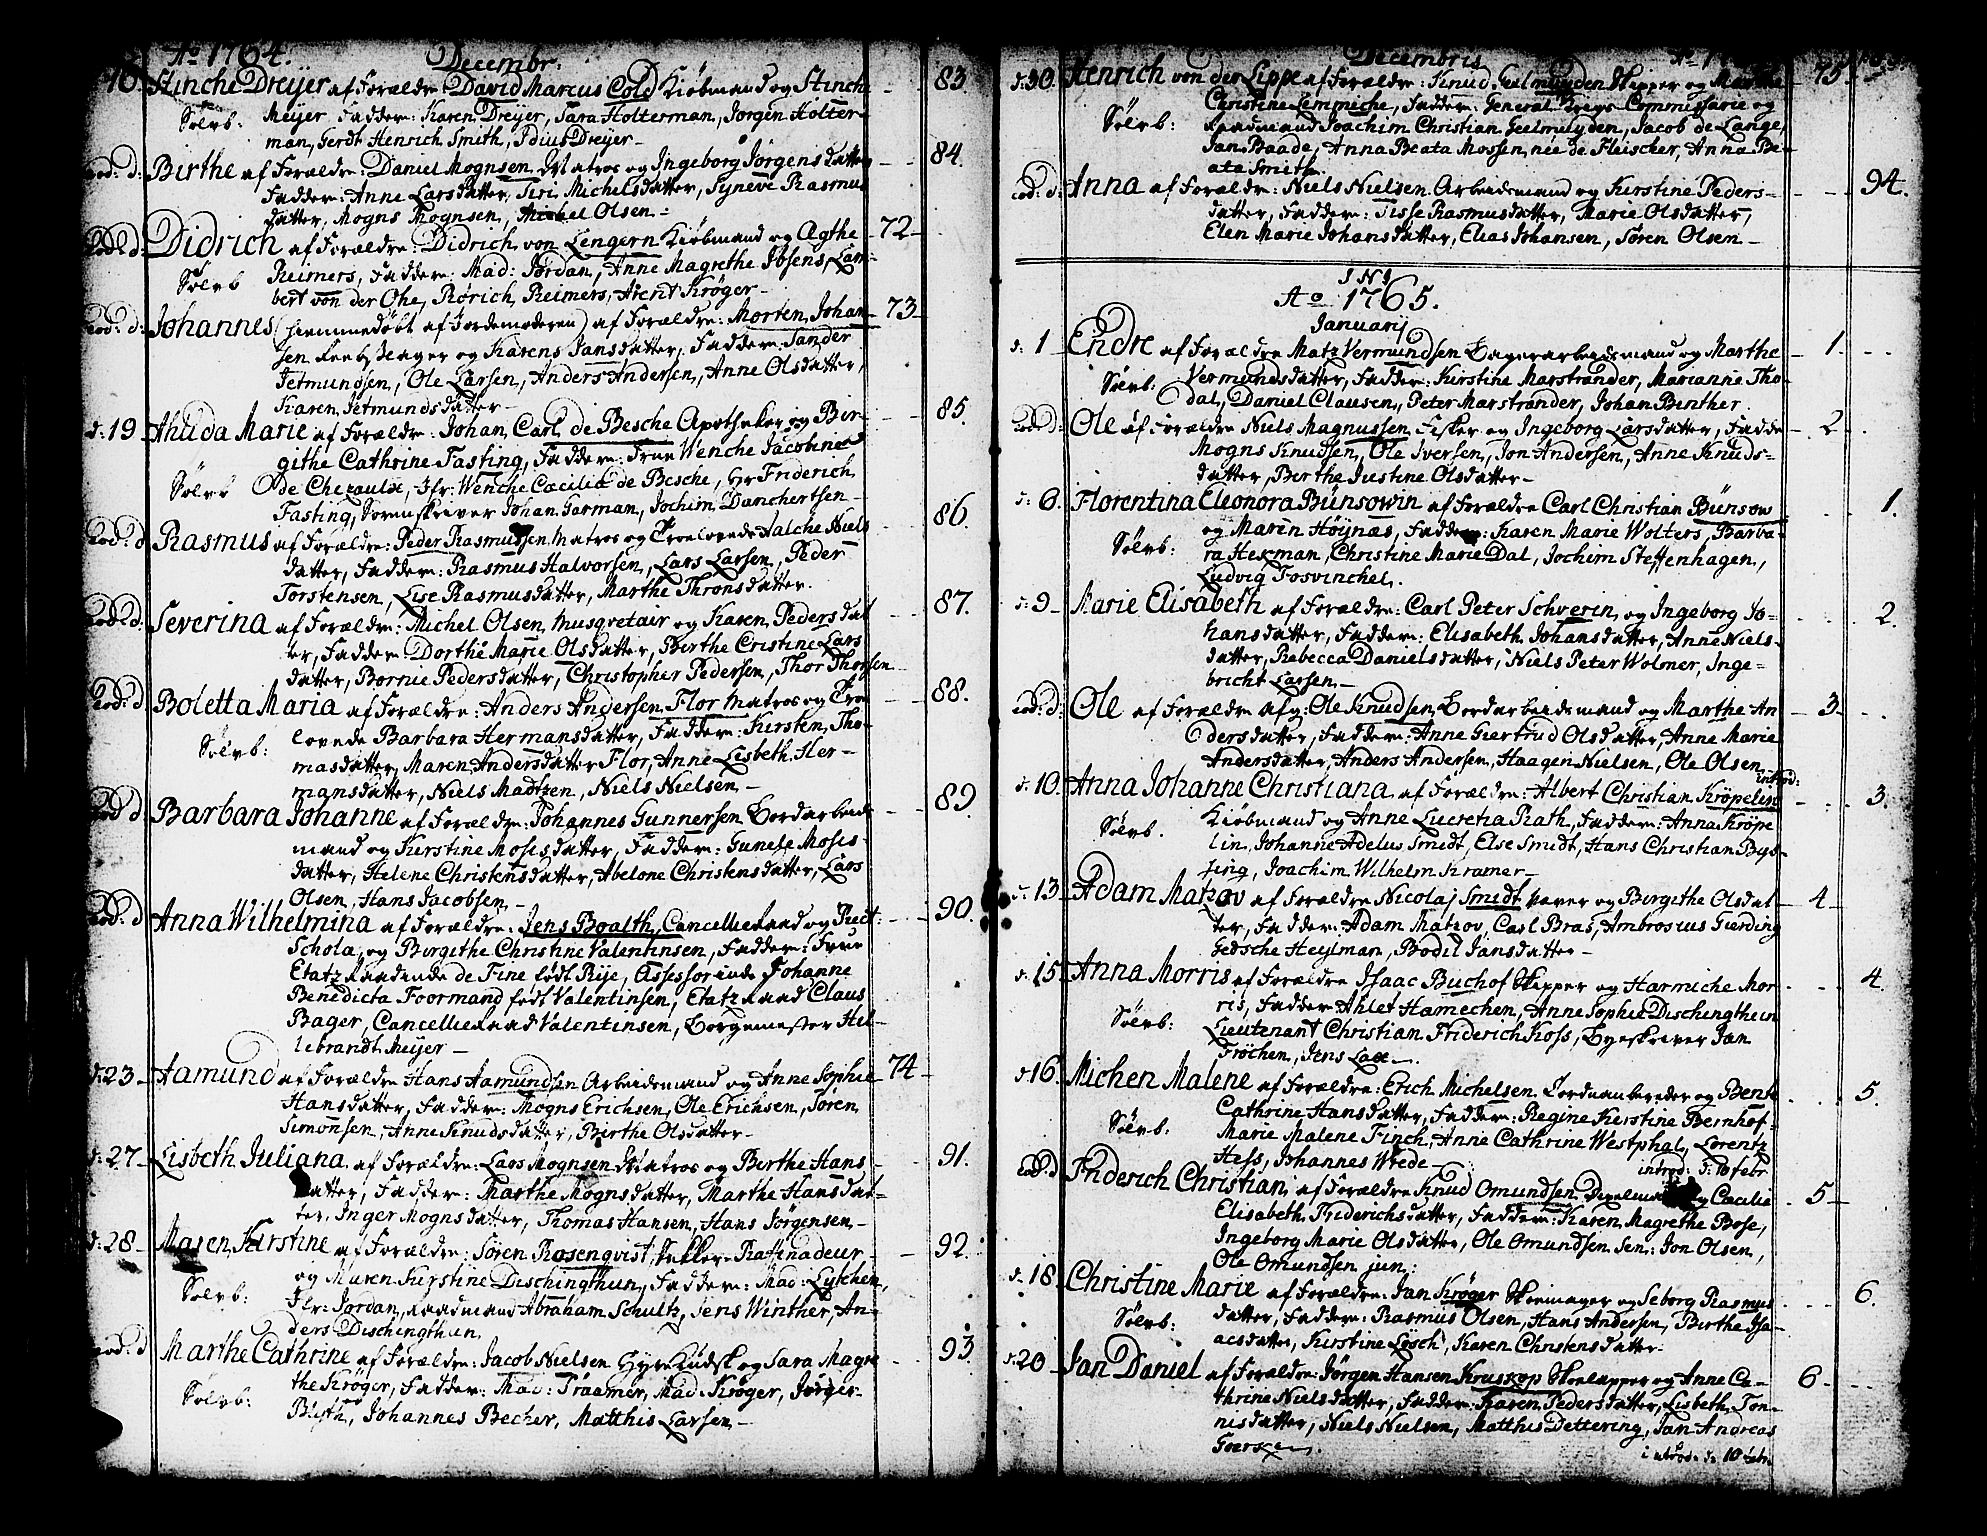 Ao 1764. Decembr.
16. Stinche Dreyer af Forældre: David Marcus Cold Kiøbmand og Stinche 83.
Sølvb: Meyer Faddere: Karen Dreyer, Sara Holterman, Jørgen Holter-
man, Gerdt Henrich Smith, Dreyer-
eod: d: Birthe af Forældre: Daniel Mognsen Matros og Ingeborg Jørgensdatter 84.
Faddere: Anne Larsdatter, Siri Michelsdatter, Syneve Rasmus
datter, Mogns Mognsen, Michel Olsen-
eod: d: Didrich af Forældre: Didrich von Lengern Kiøbmand og Agthe 72
Sølvb Reimers, Faddere: Mad: Jordan, Anne Magrethe Ibsens, Lam-
bert von der Ohe, Rørich, Reimers, Arent Krøger-
eod: d: Johannes (hiemmedøbt af Jordemoderen) af Forældre: Morten Johan- 73
sen og Karen Jansdatter, Faddere: Sander
Jetmundsen, Ole Larsen, Anders Andersen, Anne Olsdatter,
Karen Jetmundsdatter-
d: 19 Ahuda Marie af Forældre: Johan Carl de Besche Apotheker og Bir- 85.
githe Cathrine Fasting, Faddere: Frue Wenche Jacobine
Sølvb de Chezaulx, Jfr: Wenche Cæcilia de Besche, Hr Friderich
Fasting, Sorenskriver Johan Garman, Jochim Danchertsen-
eod: d Rasmus af Forældre: Peder Rasmussen Matros og Troelovede Malche Niels 86
datter, Faddere: Rasmus Halvorsen, Lars Larsen, Peder
Torstensen, Lise Rasmusdatter, Marthe Thronsdatter.
eod: d: Severina af Forældre: Michel Olsen Musqvetair og Karen Pedersdat 87.
ter, Faddere: Dorthe Marie Olsdatter, Birthe Cristine Lars
datter, Bornie Pedersdatter, Christopher Pedersen, Thor Thorsen
eod: d Boletta Maria af Forældre: Anders Andersen Flor Matros og Troe 88.
Sølvb: lovede Barbara Hermansdatter, Faddere: Kirsten Tho-
masdatter, Maren Andersdatter Flor, Anne Lisbeth Her-
mansdatter, Niels Madtzen, Niels Nielsen-
eod: d Barbara Johanne af Forældre: Johannes Gunnersen Bordarbeids 89
mand og Kirstine Mosesdatter, Faddere: Gunele Moses-
datter, Helene Christensdatter, Abelone Christensdatter, Lars
Olsen, Hans Jacobsen-
eod: d Anna Wilhelmina af Forældre: Jens Boalth, Cancellieraad og Rect: 90.
Schola, og Birgithe Christine Valentinsen, Faddere: Frue
Etatzraadinde de Fine født Rije, Assessorinde Johanne
Benedicta Foormand født Valentinsen, Etatzraad Claus
Bager, Cancellieraad Valentinsen, Borgemester Hil-
lebrandt Meyer-
d: 23 Aamund af Forældre Hans Aamundsen Arbeidsmand og Anne Sophie 74
Hansdatter, Faddere: Mogns Erichsen, Ole Erichsen, Søren
Simonsen, Anne Knudsdatter, Birthe Olsdatter-
d: 27 Lisbeth Juliana af Forældre: Lars Mognsen Matros og Birthe Hans 91.
datter, Faddere: Marthe Mognsdatter, Marthe Hansdat-
ter, Inger Mognsdatter, Thomas Hansen, Hans Jørgensen-
d: 28 Maren Kirstine af Forældre: Søren Rosenqvist, Sukker-Raffinadeur 92.
Sølvb: og Maren Kirstine Dischingthun, Faddere: Mad: Lytchen,
Jfr: Jordan, Raadmand Abraham Schultz, Jens Winther, An-
ders Dischingthun
eod: d Marthe Cathrine af Forældre: Jacob Nielsen Hyrekudsk og Sara Magre 93
Sølvb: the Krøger, Faddere: Mad: Traamer, Mad: Krøger, Jørger
Johannes Becher, Matthis Larsen-
Decembris Ao 17
d: 30. Henrich von der Lippe af Forældre: Knud Geelmuyden Skipper og Marthe 75.
Christine Lemmiche, Faddere: General Krigs Commissarie og
Sølvb: Raadmand Joachim Christian Geelmuyden, Jacob de Lange,
Jan Baade, Anna Beata Mossen, née de Fleischer, Anna Be-
ata Smith
eod: d: Anna af Forældre: Niels Nielsen Arbeidsmand og Kirstine Peders- 94.
datter, Faddere: Sisse Rasmusdatter, Marie Olsdatter,
Elen Marie Johansdatter, Elias Johansen, Søren Olsen-
I N I
Ao 1765.
Januarij
d: 1 Endre af Forældre Matz Vermundsen Bagerarbeidsmand og Marthe 1.
Sølvb: Vermundsdatter, Faddere: Kirstine Marstrander, Marianne Tho-
dal, Daniel Clausen, Peter Marstrander, Johan Binther
eod: d: Ole af Forældre Niels Magnussen, Fisker og Ingeborg Larsdatter, Fadde 2
Mogns Knudsen, Ole Iversen, Jon Andersen, Anne Knuds-
datter, Berthe Justine Olsdatter-
d: 6. Florentina Eleonora Bünsowin af Forældre Carl Christian Bünsow 1.
og Maren Høynæs, Faddere: Karen Marie Wolters, Barba-
Sølvb: ra Hekman, Christine Marie Dal, Jochim Steffenhagen,
Ludvig Fosvinchel.
d: 9- Marie Elisabeth af Forældre: Carl Peter Schverin, og Ingeborg Jo- 2.
hansdatter, Faddere: Elisabeth Johansdatter, Anne Niels-
datter, Rebecca Danielsdatter, Niels Peter Wolmer, Inge-
bricht Larsen-
eod: d: Ole af Forældre Ole Knudsen, Bordarbeidsmand og Marthe An 3
dersdatter, Faddere: Anne Giertrud Olsdatter, Anne Marie
Andersdatter, Anders Andersen, Haagen Nielsen, Ole Olsen
introd:
d: 10. Anna Johanne Christiana af Forældre: Albert Christian Krøpelin 3.
Sølvb. Kiøbmand og Anne Lucretia Rath, Faddere: Anna Krøpe
lin, Johanne Adelus Smidt, Else Smidt, Hans Christian Bys-
sing, Joachim Wilhelm Kramer-
d: 13 Adam Matzov af Forældre Nicolaj Smidt Væver og Birgithe Olsdat 4
ter, Faddere: Adam Matzov, Carl Bras, Ambrosius Gierding
Gedsche Heylman, Bodil Jansdatter-
d: 15 Anna Morris af Forældre Isaac Buchof Skipper og Harmiche Mor 4.
ris, Faddere Ahlet Hamechen, Anne Sophie Dischingthun
Sølvb: Lieutenant Christian Friderich Koss, Byeskriver Jan
Frøchen, Jens Lae-
d: 16 Michen Malene af Forældre: Erich Michelsen og Bente 5.
Cathrine Hansdatter, Faddere: Regine Kirstine Bernhoft
Sølvb. Marie Malene Finch, Anne Cathrine Westphal, Lorentz
Hess, Johannes Wrede-
introd: d: 10 Febr
eod: d Friderich Christian af Forældre Knud Omundsen og Cæcilie 5
Elisabeth Friderichsdatter, Faddere: Karen Magrethe Bose,
Ingeborg Marie Olsdatter, Ole Omundsen sen: Jon Olsen,
Ole Omundsen jun:
d: 18. Christine Marie af Forældre: Jan Krøger Skomager og Seborg Rasmus 6.
Sølvb: datter, Faddere: Rasmus Olsen, Hans Andersen, Birthe Isa-
acsdatter, Kirstine Løsch, Karen Christensdatter-
d: 20 Jan Daniel af Forældre: Jørgen Hansen Kruskop Skoelapper og Anne Ca- 6
thrine Nielsdatter, Faddere: Karen Pedersdatter, Lisbeth Ton-
nisdatter, Niels Nielsen, Matthis Dettering, Jan Andreas
introd: d: 10 Febr.